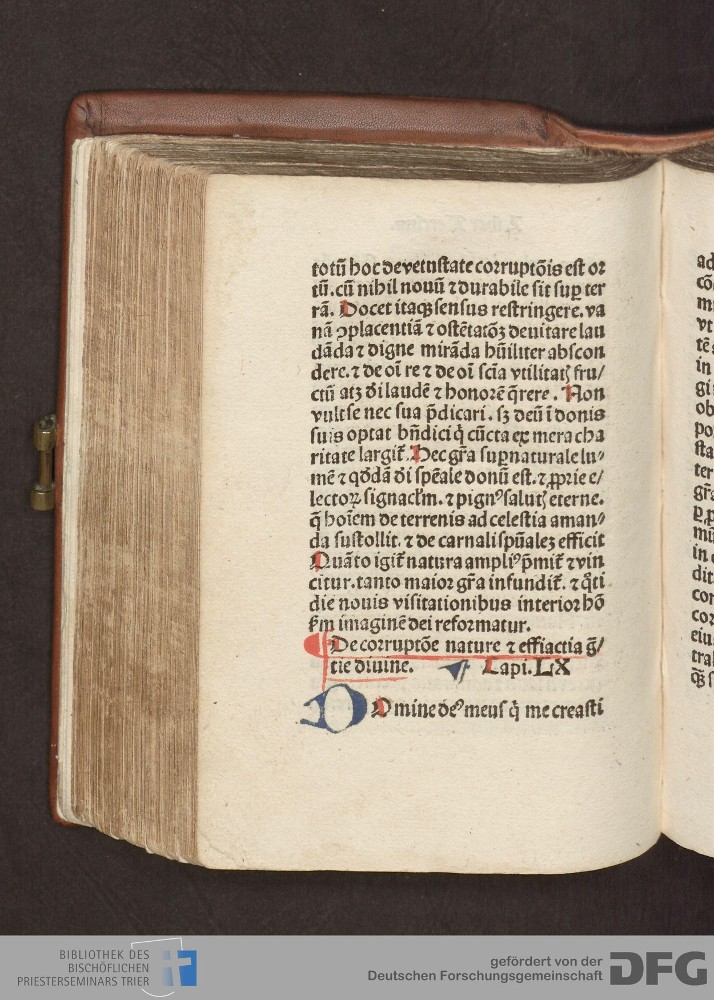 totū hoc de vetustate corruptōis est or
tū. cū nihil nouū ⁊ durabile sit sup ter
rā. Docet itaqꝫ sensus restringere. va
nā ꝯplacentiā ⁊ ostētatōꝫ deuitare lau
dāda ⁊ digne mirāda hūiliter abscon
dere. ⁊ de oī re ⁊ de oī scīa vtilitatꝭ fru/
ctū atꝫ dī laudē ⁊ honorē q̄rere. Non
vult se nec sua p̄dicari. sꝫ deū ī donis
suis optat bn̄dici q̇ cūcta ex mera cha
ritate largit᷑. Hec gr̄a sup̄naturale lu⸗
mē ⁊ qd̄dā dī spēale donū est. ⁊ ꝓprie e/
lectoꝝ signacl̄m. ⁊ pignꝰ salutꝭ eterne.
q̄ hoīem de terrenis ad celestia aman⸗
da sustollit. ⁊ de carnali spūaleꝫ efficit
Quāto igit᷑ natura ampliꝰ p̄mit᷑ ⁊ vin
citur. tanto maior gr̄a infundit᷑. ⁊ q̄ti
die nouis visitationibus interior hō
ẜm imaginē dei reformatur.
De corruptōe nature ⁊ effiactia ḡ/
tie diuine. Capi. LX
Domine deꝰ meus q̇ me creasti
BIBLIOTHEK DES
BISCHÖFLICHEN
PRIESTERSEMINARS TRIER
gefördert von der
Deutschen Forschungsgemeinschaft
DFG